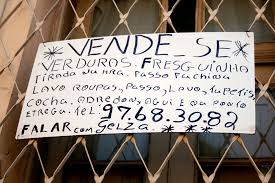 VENDE-SE
VERDURAS. FRESGUINHA
TIRADA NA HRA. PASSO FACHINA
LAVO ROUPAS, PASSO, LAVO, TAPETES
COCHA. ADREDON, AQUI E NA PORTO
ETREGA. TEL. 97.68.30.82
FALAR COM GELZA.